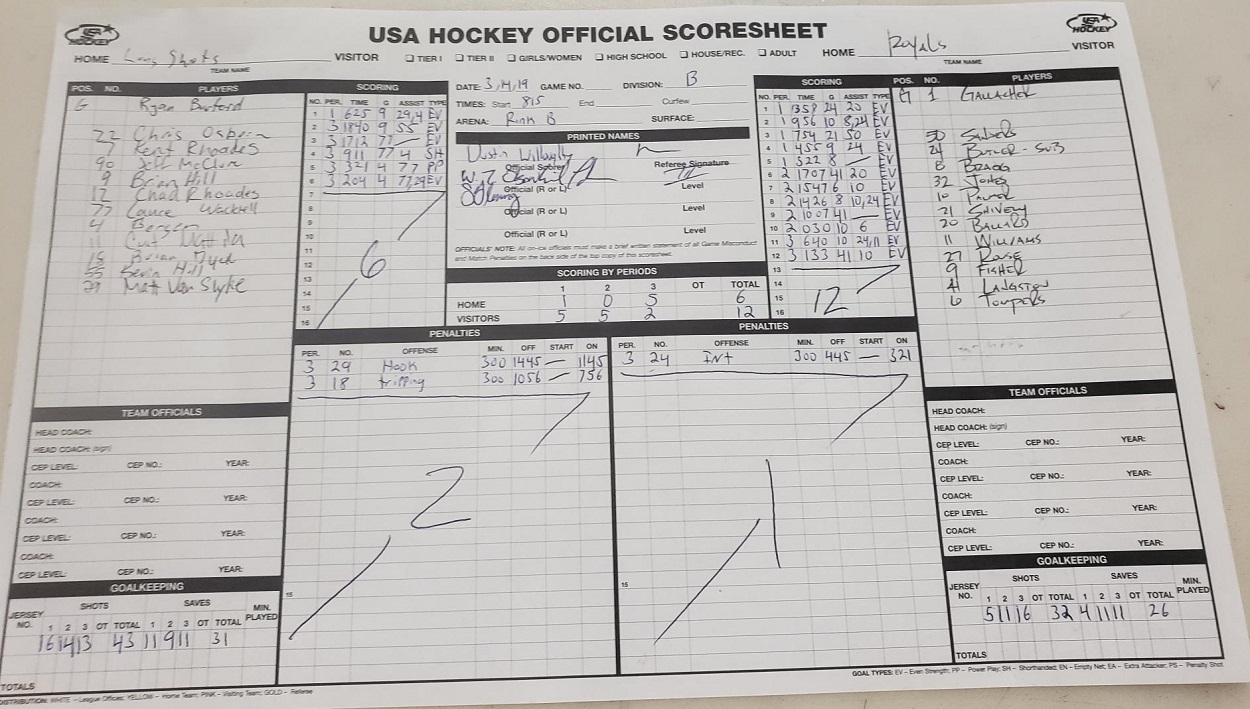 USA HOCKEY OFFICIAL SCORESHEET
USA HOCKEY
USA HOCKEY
HOME Long Shots VISITOR
TEAM NAME
☐ TIER I ☐ TIER II ☐ GIRLS/WOMEN ☐ HIGH SCHOOL ☐ HOUSE/REC. ☐ ADULT
HOME Royals VISITOR
TEAM NAME
POS. NO. PLAYERS
G Ryan Buford
22 Chris Osborn
7 Kent Rhoades
90 Jeff McClure
9 Brian Hill
12 Chad Rhoades
77 Lance
4 Bergen
11
18 Brian Dyck
55 Kevin Hill
29 Matt Van Slyke
SCORING
NO. PER. TIME G ASSIST TYPE
1 1 625 9 29,4 EV
2 3 1840 9 55 EV
3 3 1712 77 — EV
4 3 911 77 4 SH
5 3 321 4 77 PP
6 3 204 4 77,29 EV
7
8
9
10
11
12
13
14
15
16
6
DATE: 3/14/19 GAME NO. DIVISION: B
TIMES: Start 815 End Curfew
ARENA: Rink B SURFACE:
PRINTED NAMES
Dustin Willoughby
Official Scorer Referee Signature
Official (R or L) Level
Official (R or L) Level
Official (R or L) Level
OFFICIALS' NOTE: All on-ice officials must make a brief written statement of all Game Misconduct
and Match Penalties on the back side of the top copy of this scoresheet.
SCORING BY PERIODS
1 2 3 OT TOTAL
HOME 1 0 5 6
VISITORS 5 5 2 12
SCORING
NO. PER. TIME G ASSIST TYPE
1 1 1358 24 20 EV
2 1 956 10 8,24 EV
3 1 754 21 50 EV
4 1 455 9 24 EV
5 1 322 8 — EV
6 2 1707 41 20 EV
7 2 1547 6 10 EV
8 2 1426 8 10,24 EV
9 2 1007 41 — EV
10 2 030 10 6 EV
11 3 640 10 24,11 EV
12 3 133 41 10 EV
13
14
15
16
12
POS. NO. PLAYERS
G 1 GALLAGHER
50
24 BUTLER - SUB
8 BRAGG
32 JONES
10
21 SHIVELY
20 BALLARD
11 WILLIAMS
27 ROSE
9 FISHER
41 LANGSTON
6
PENALTIES
PER. NO. OFFENSE MIN. OFF START ON
3 29 Hook 300 1445 — 1145
3 18 tripping 300 1056 — 756
2
15
PENALTIES
PER. NO. OFFENSE MIN. OFF START ON
3 24 INt 300 445 — 321
1
15
TEAM OFFICIALS
HEAD COACH:
HEAD COACH: (sign)
CEP LEVEL: CEP NO.: YEAR:
COACH:
CEP LEVEL: CEP NO.: YEAR:
COACH:
CEP LEVEL: CEP NO.: YEAR:
COACH:
CEP LEVEL: CEP NO.: YEAR:
GOALKEEPING
JERSEY NO. SHOTS SAVES MIN. PLAYED
1 2 3 OT TOTAL 1 2 3 OT TOTAL
16 14 13 43 11 9 11 31
TOTALS
TEAM OFFICIALS
HEAD COACH:
HEAD COACH: (sign)
CEP LEVEL: CEP NO.: YEAR:
COACH:
CEP LEVEL: CEP NO.: YEAR:
COACH:
CEP LEVEL: CEP NO.: YEAR:
COACH:
CEP LEVEL: CEP NO.: YEAR:
GOALKEEPING
JERSEY NO. SHOTS SAVES MIN. PLAYED
1 2 3 OT TOTAL 1 2 3 OT TOTAL
5 11 16 32 4 11 11 26
TOTALS
DISTRIBUTION: WHITE – League Offices; YELLOW – Home Team; PINK – Visiting Team; GOLD – Referee
GOAL TYPES: EV – Even Strength; PP – Power Play; SH – Shorthanded; EN – Empty Net; EA – Extra Attacker; PS – Penalty Shot